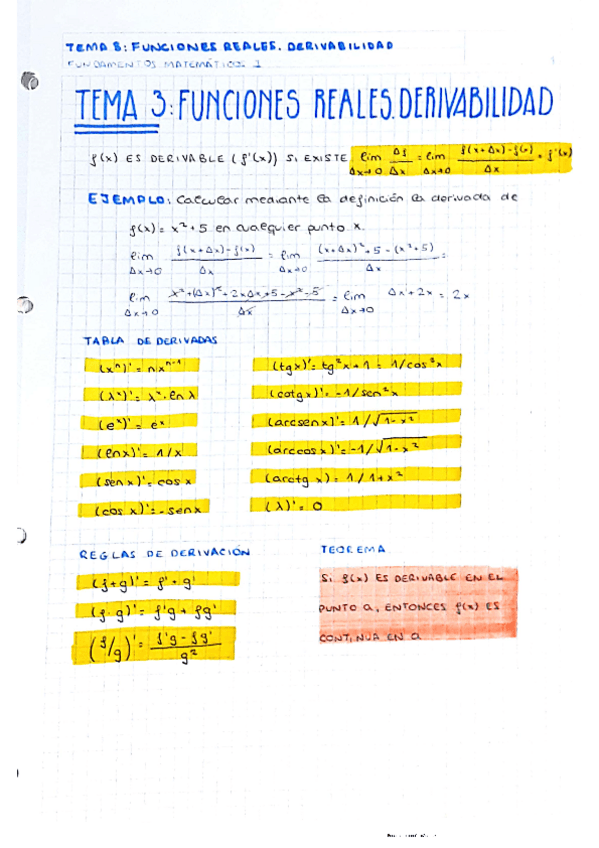 TEMA 3: FUNCIONES REALES. DERIVABILIDAD
FUNDAMENTOS MATEMÁTICOS 1
TEMA 3: FUNCIONES REALES. DERIVABILIDAD
f(x) ES DERIVABLE (f'(x)) SI EXISTE lim Δx→0 Δf/Δx = lim Δx→0 (f(x+Δx)-f(x))/Δx = f'(x)
EJEMPLO: Calcular mediante la definición la derivada de
f(x) = x²+5 en cualquier punto x.
lim Δx→0 (f(x+Δx)-f(x))/Δx = lim Δx→0 ((x+Δx)²+5-(x²+5))/Δx =
lim Δx→0 (x²+(Δx)²+2xΔx+5-x²-5)/Δx = lim Δx→0 Δx+2x = 2x
TABLA DE DERIVADAS
(xⁿ)' = nxⁿ⁻¹
(λˣ)' = λˣ·ln λ
(eˣ)' = eˣ
(ln x)' = 1/x
(sen x)' = cos x
(cos x)' = -sen x
(tg x)' = tg²x+1 = 1/cos²x
(cotg x)' = -1/sen²x
(arcsen x)' = 1/√1-x²
(arccos x)' = -1/√1-x²
(arctg x) = 1/1+x²
(λ)' = 0
REGLAS DE DERIVACIÓN
(f+g)' = f'+g'
(f·g)' = f'g + fg'
(f/g)' = (f'g - fg')/g²
TEOREMA
Si f(x) ES DERIVABLE EN EL
PUNTO a, ENTONCES f(x) ES
CONTINUA EN a